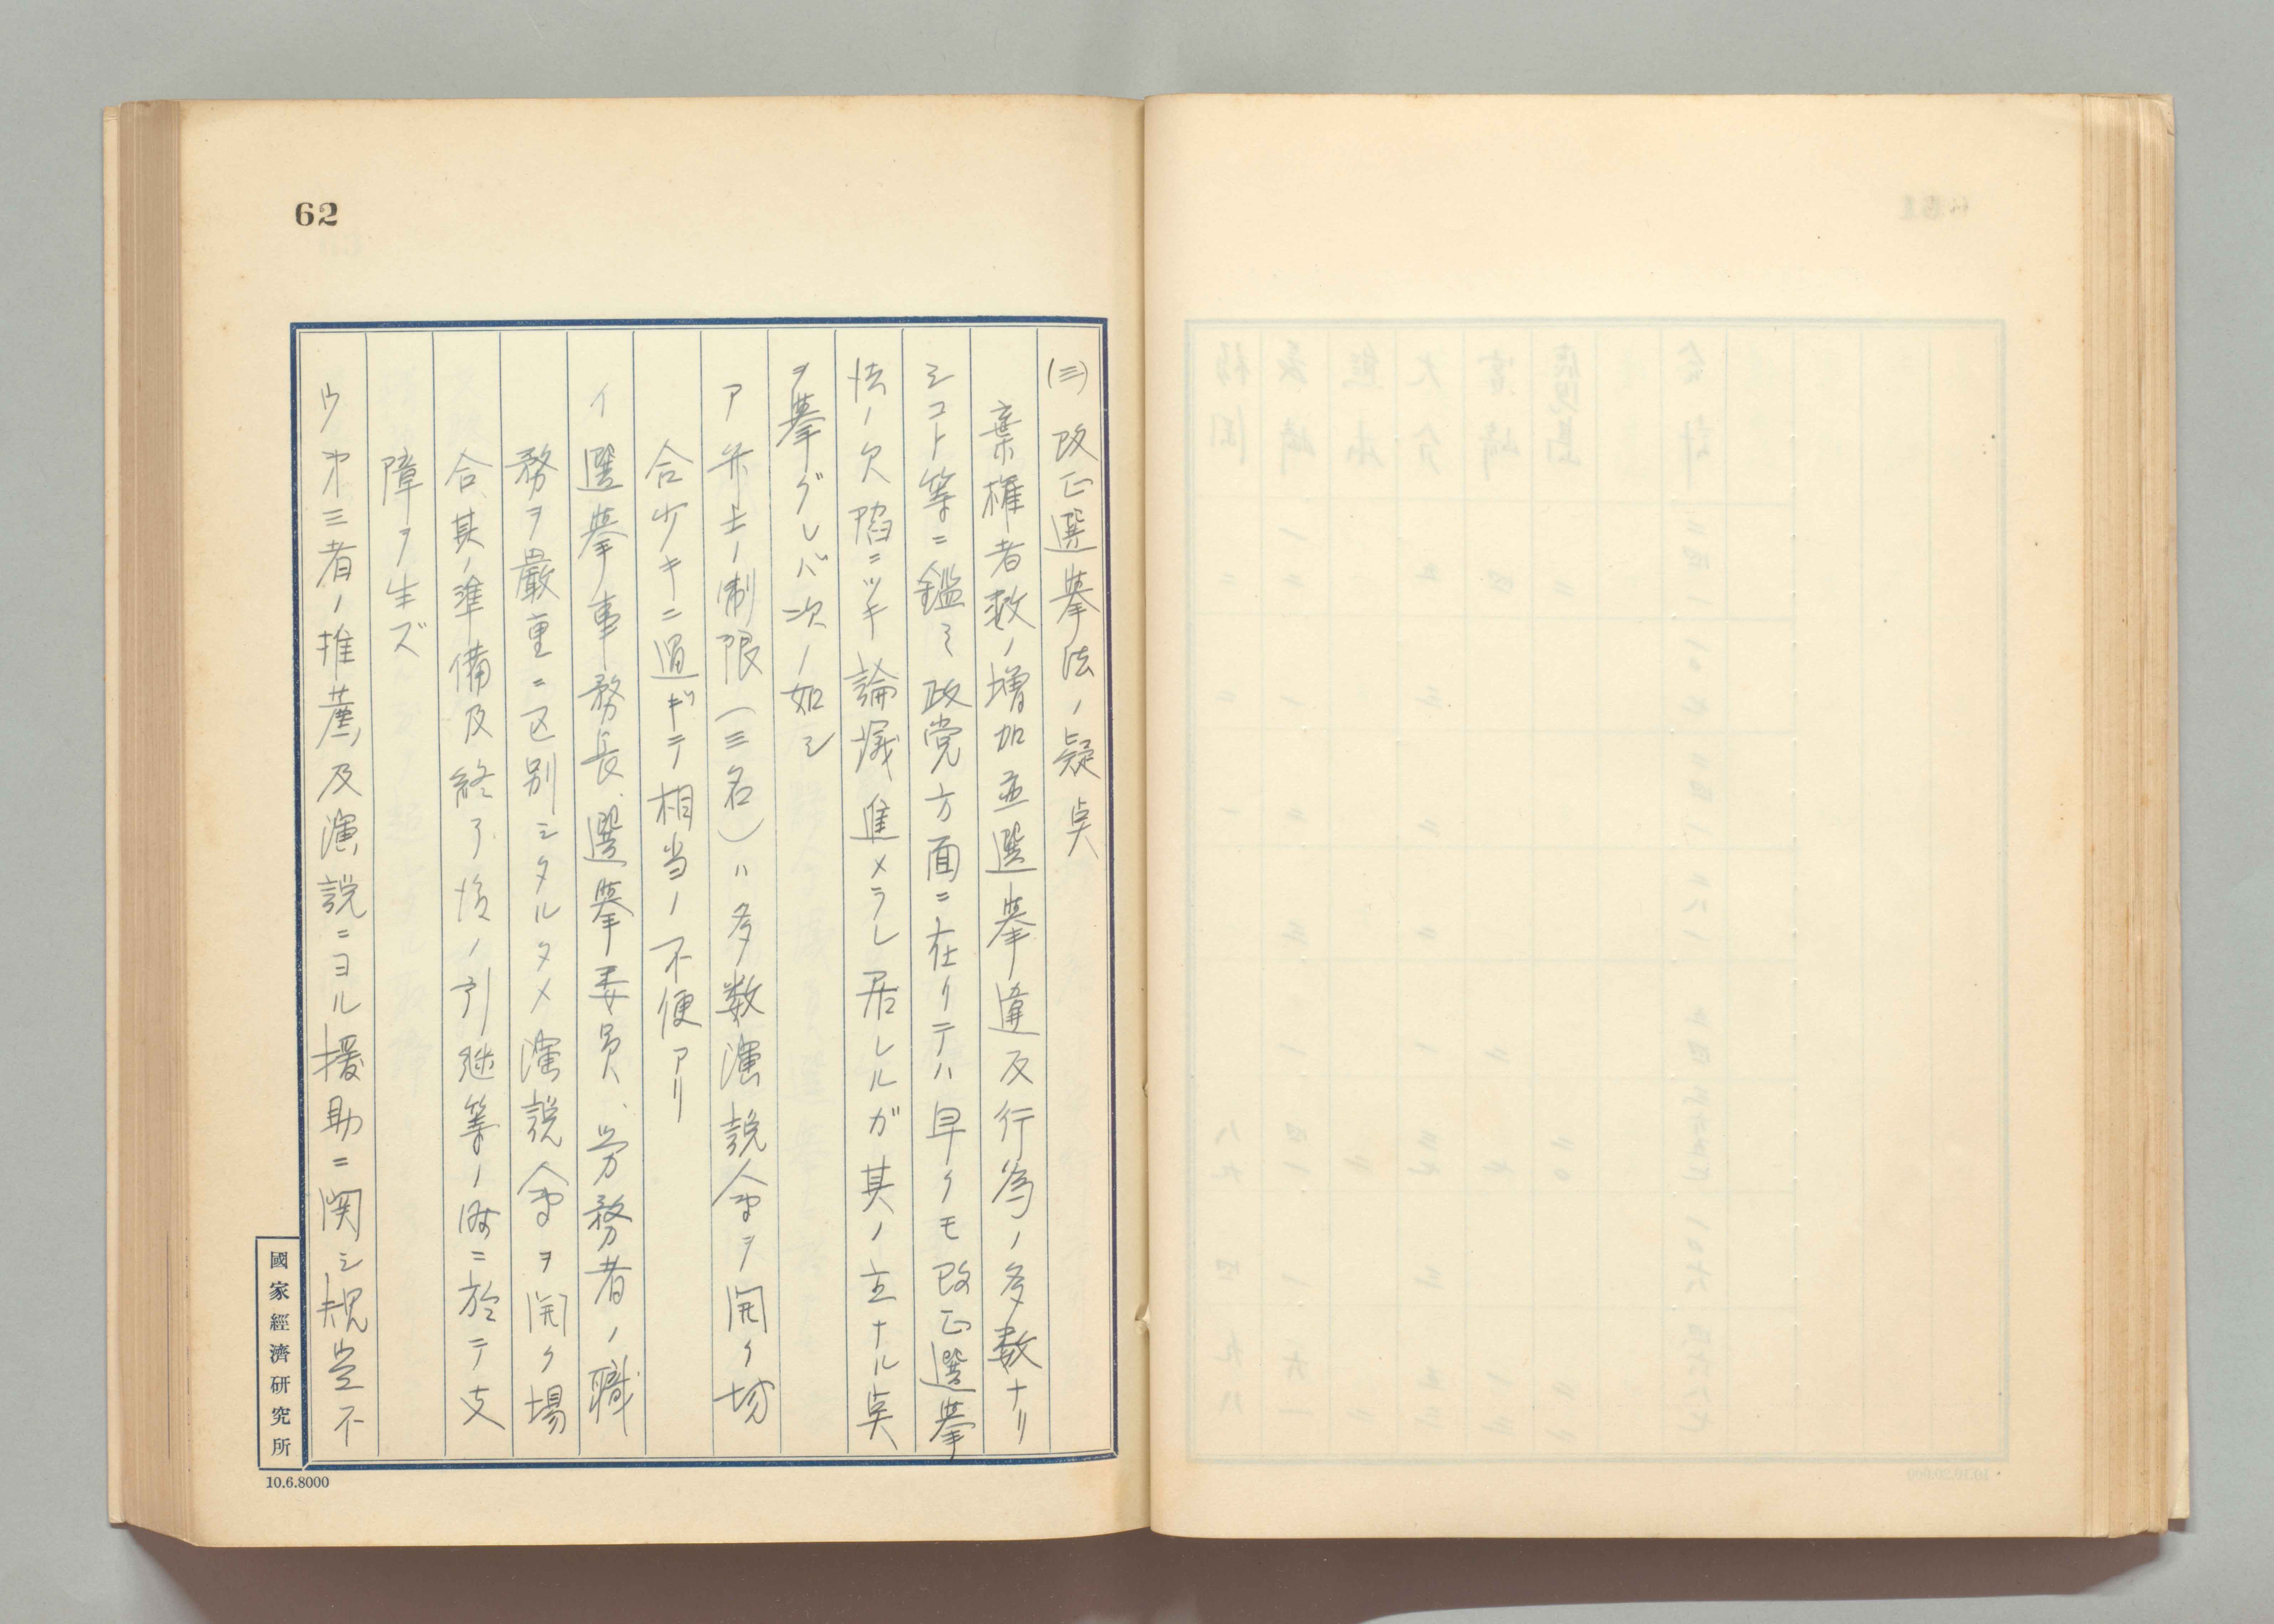 62
(三)改正選挙法ノ疑点
棄権者数ノ増加並選挙違反行為ノ多数ナリ
シコト等ニ鑑ミ政党方面ニ在リテハ早クモ改正選挙
法ノ欠陥ニツキ論議進メラレ居レルガ其ノ主ナル点
ヲ挙グレバ次ノ如シ
ア弁士ノ制限(三名)ハ多数演説会ヲ開ク場
合少キニ過ギテ相当ノ不便アリ
イ選挙事務長、選挙委員、労務者ノ職
務ヲ厳重ニ区別シタルタメ演説会ヲ開ク場
合、其ノ準備及終了後ノ引継等ノ際ニ於テ支
障ヲ生ズ
ウ第三者ノ推薦及演説ニヨル援助ニ関シ規定不
國家經濟研究所
10.6.8000